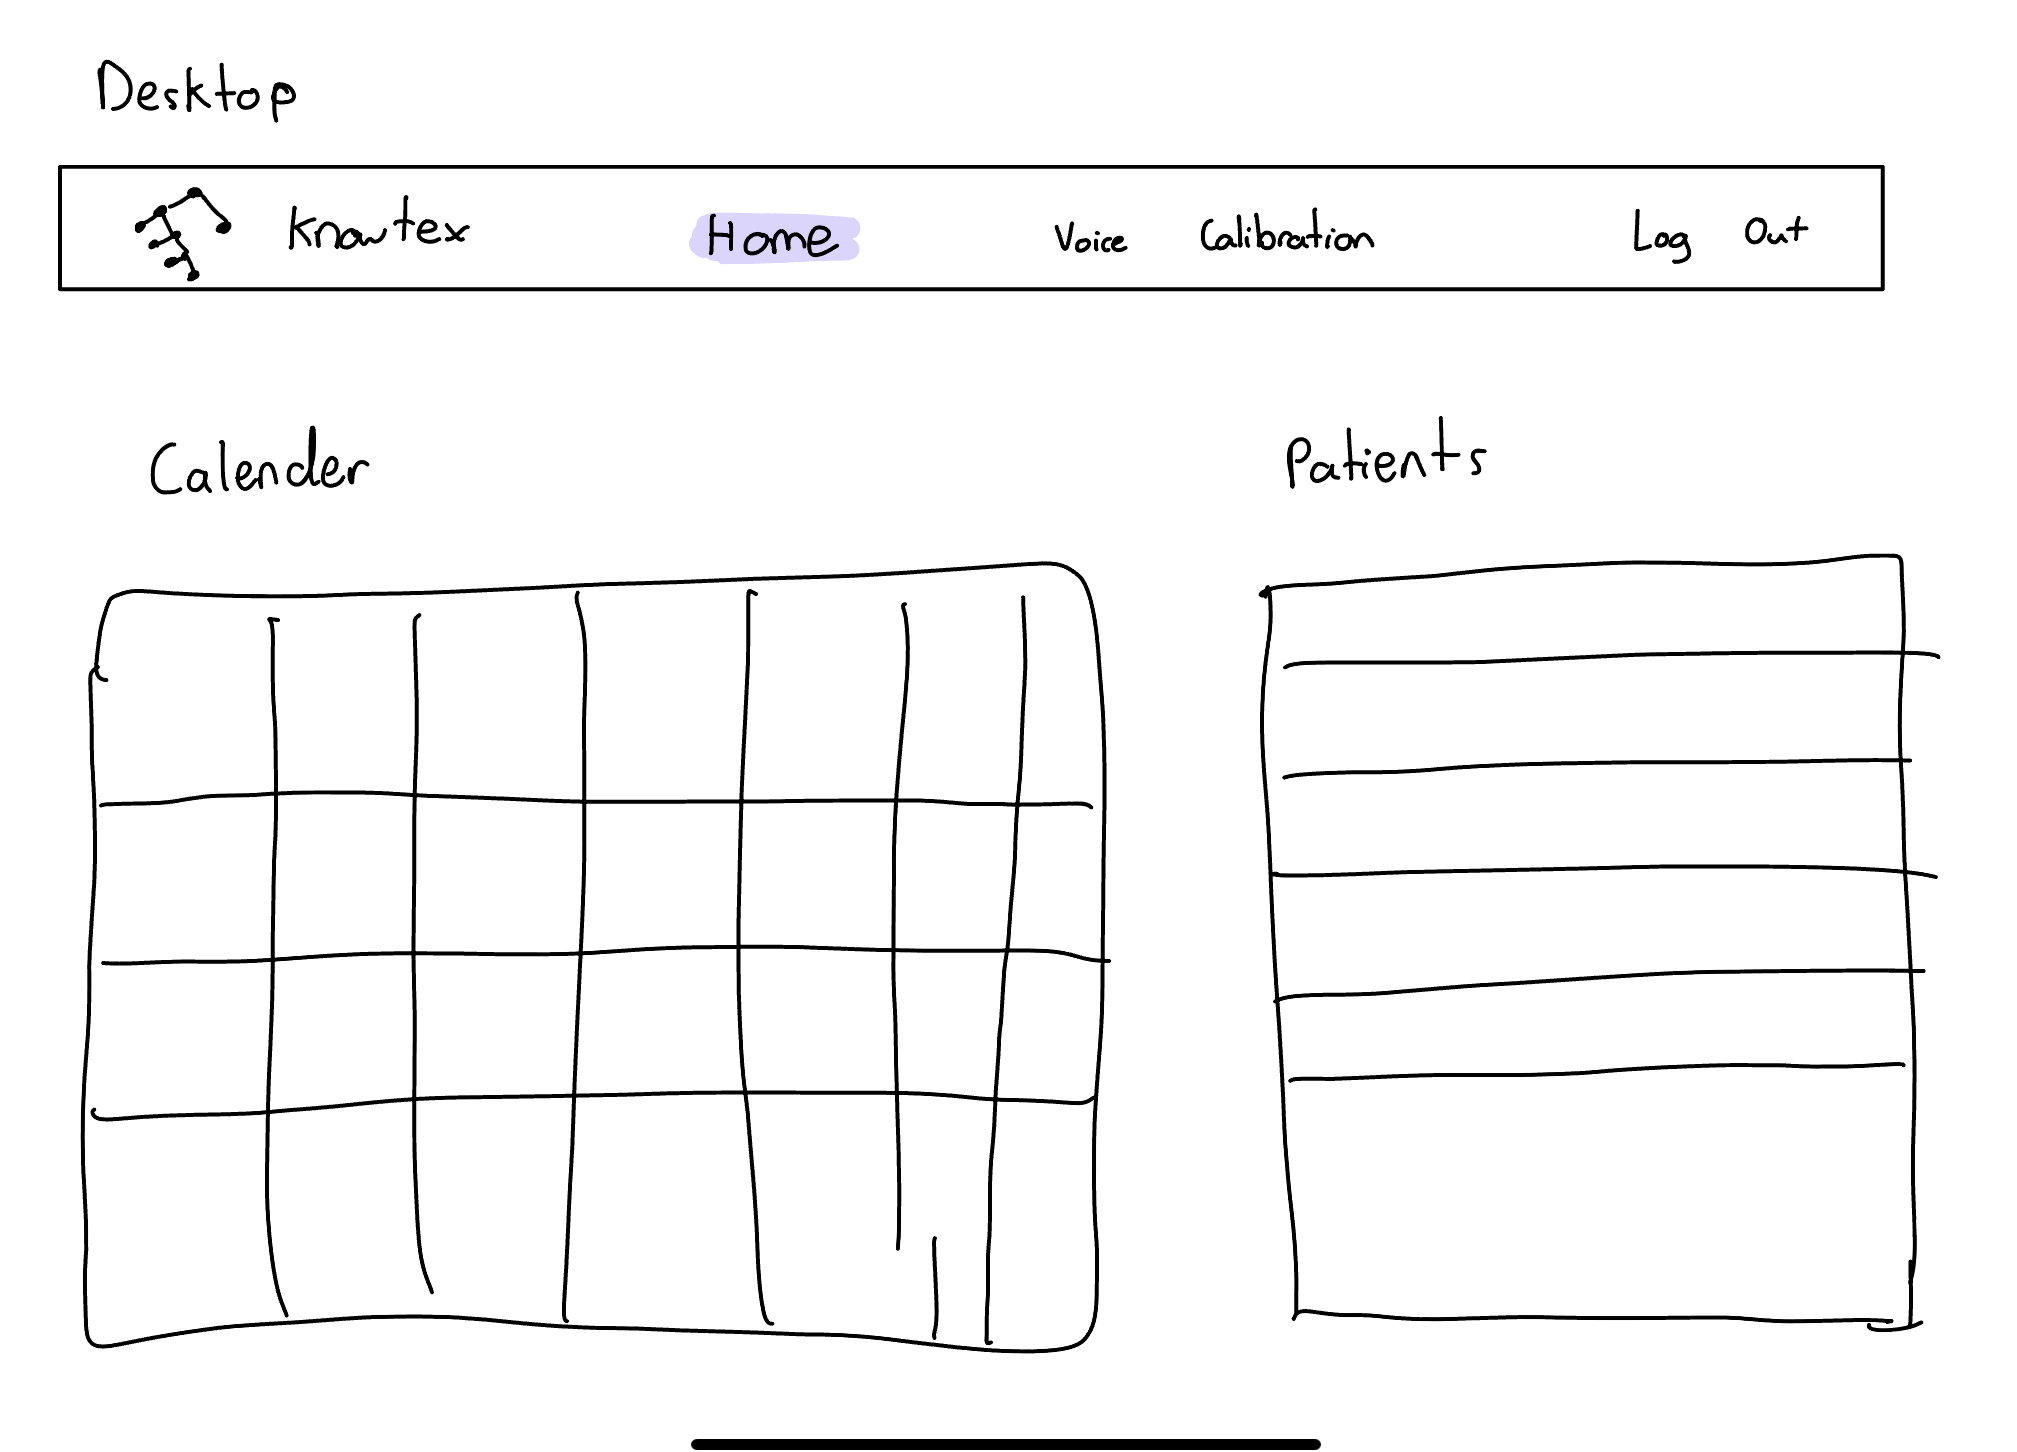 Desktop
Knowtex Home Voice Calibration Log Out
Calender Patients